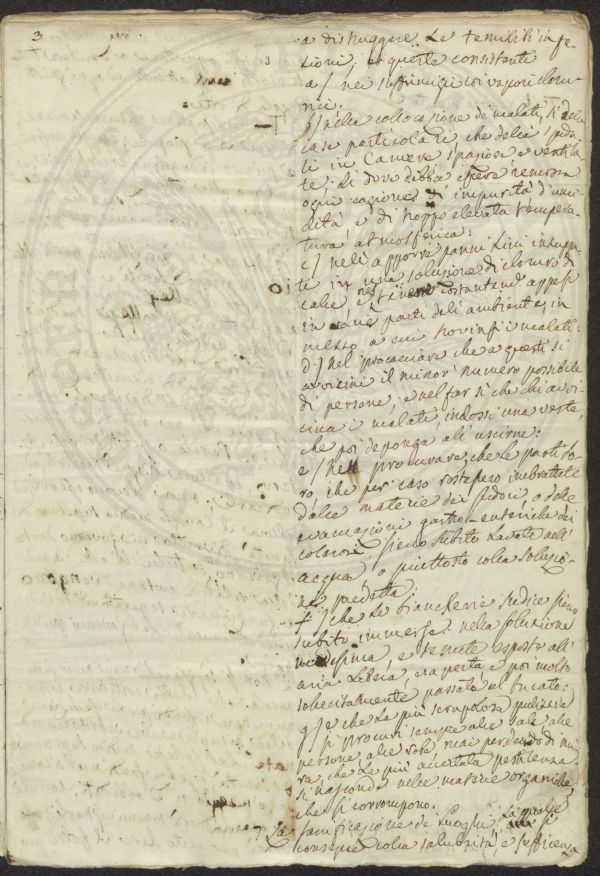 3
3
a distruggere le temibili infe-
zioni; e queste consistenti
a/ nei suffumigi coi vapori cloru-
nci.
b/ nella collocazione de' malati, sì delle
case particolari che delli speda-
li in Camere spaziose e ventila-
te. Si dove debba essere remossa
ogni cagione di impurità d'umi-
dità e di troppo elevata tempera-
tura atmosferica:
c/ nell'apporre panni lini inzup-
ti in una soluzione di cloruro di
calce e tenere costantemente appesi
in varie parti dell'ambiente, in
mezzo a cui trovinsi i malati:
d/ nel procacciare che a questi si
avvicini il minor numero possibile
di persone, e nel far sì che chi avvi-
cina i malati, indossi una veste,
che poi deponga all'uscirne:
e/ nel procurare che le parti lo-
ro, che per caso restassero imbrattate
dalle materie dei sudori, o delle
evacuazioni gastro-enteriche dei
colerosi sieno subito lavate nell'
acqua o piuttosto colla soluzio-
ne predetta:
f/ che le biancherie sudice sieno
subito immerse nella soluzione
medesima, e tenute esposte all'
aria libera, e aperta e poi molto
sollecitamente passate al bucato:
g/ che la più scrupolosa pulizia
si procuri sempre alle sale alle
persone, alle robe mai perdendo di mi-
ra, che la più accertata pestilenza
si nasconde nelle materie organiche,
che si corrompono.
La sanificazione de' luoghi, la quale si
consegue colla salubrità, e sufficienza